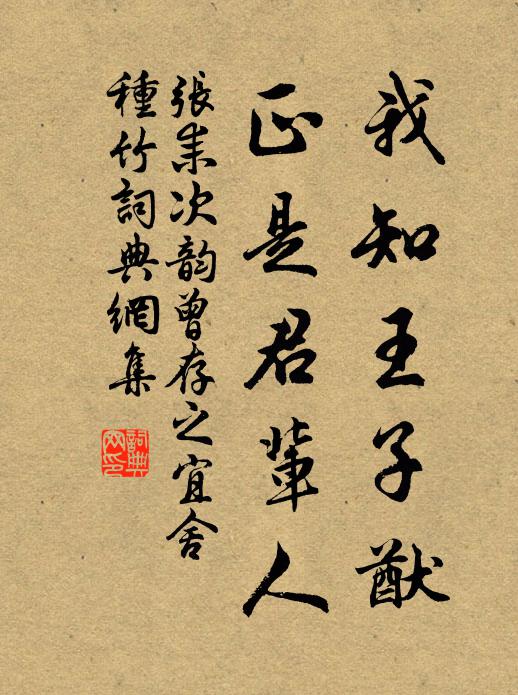 我知王子猷
正是君輩人
張耒次韵曾存之宜舍
種竹詞典網集
詞典
网印